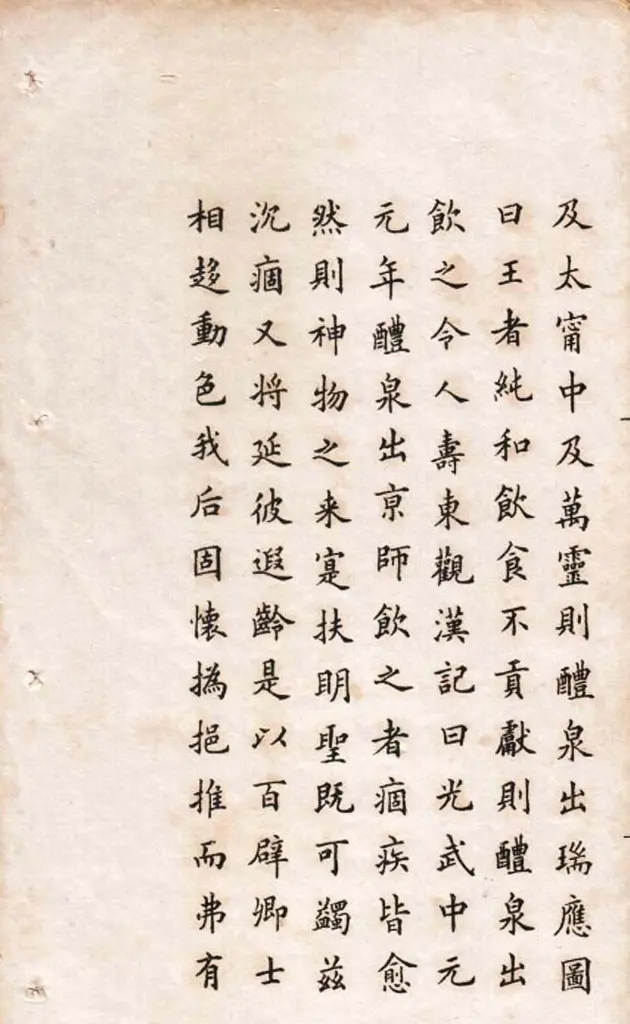 及太甯中及萬靈則醴泉出瑞應圖
曰王者純和飲食不貢獻則醴泉出
飲之令人壽東觀漢記曰光武中元
元年醴泉出亰師飲之者痼疾皆愈
然則神物之来寔扶眀聖既可蠲兹
沉痼又将延彼遐齡是以百辟卿士
相趍動色我后固懷撝挹推而弗有